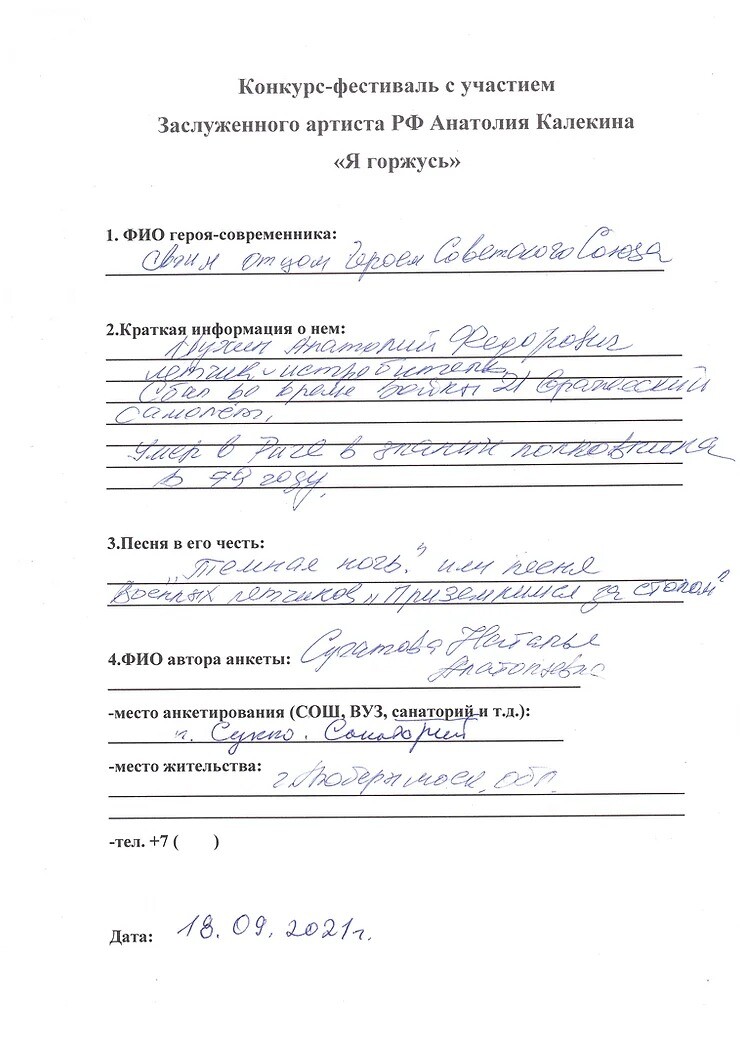 Конкурс-фестиваль с участием
Заслуженного артиста РФ Анатолия Калекина
«Я горжусь»
1. ФИО героя-современника:
Своим отцом Героем Советского Союза
2.Краткая информация о нем:
Анатолий Федорович
летчик-истребитель
Сбил во время войны 21 вражеский
самолет,
Умер в Риге в звании полковника
в 79 году,
3.Песня в его честь:
„Темная ночь." или песня
Военных летчиков „Приземлимся за столом"
4.ФИО автора анкеты: Наталья
Анатольевна
-место анкетирования (СОШ, ВУЗ, санаторий и т.д.):
п. Сукко. Санаторий
-место жительства: г. Люберцы моск. обл.
-тел. +7 (      )
Дата: 18.09.2021г.